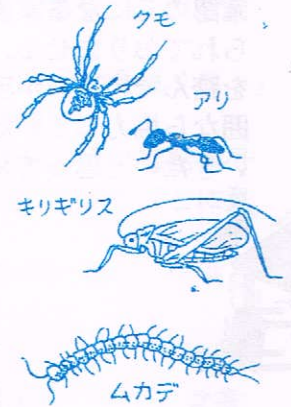 クモ
アリ
キリギリス
ムカデ